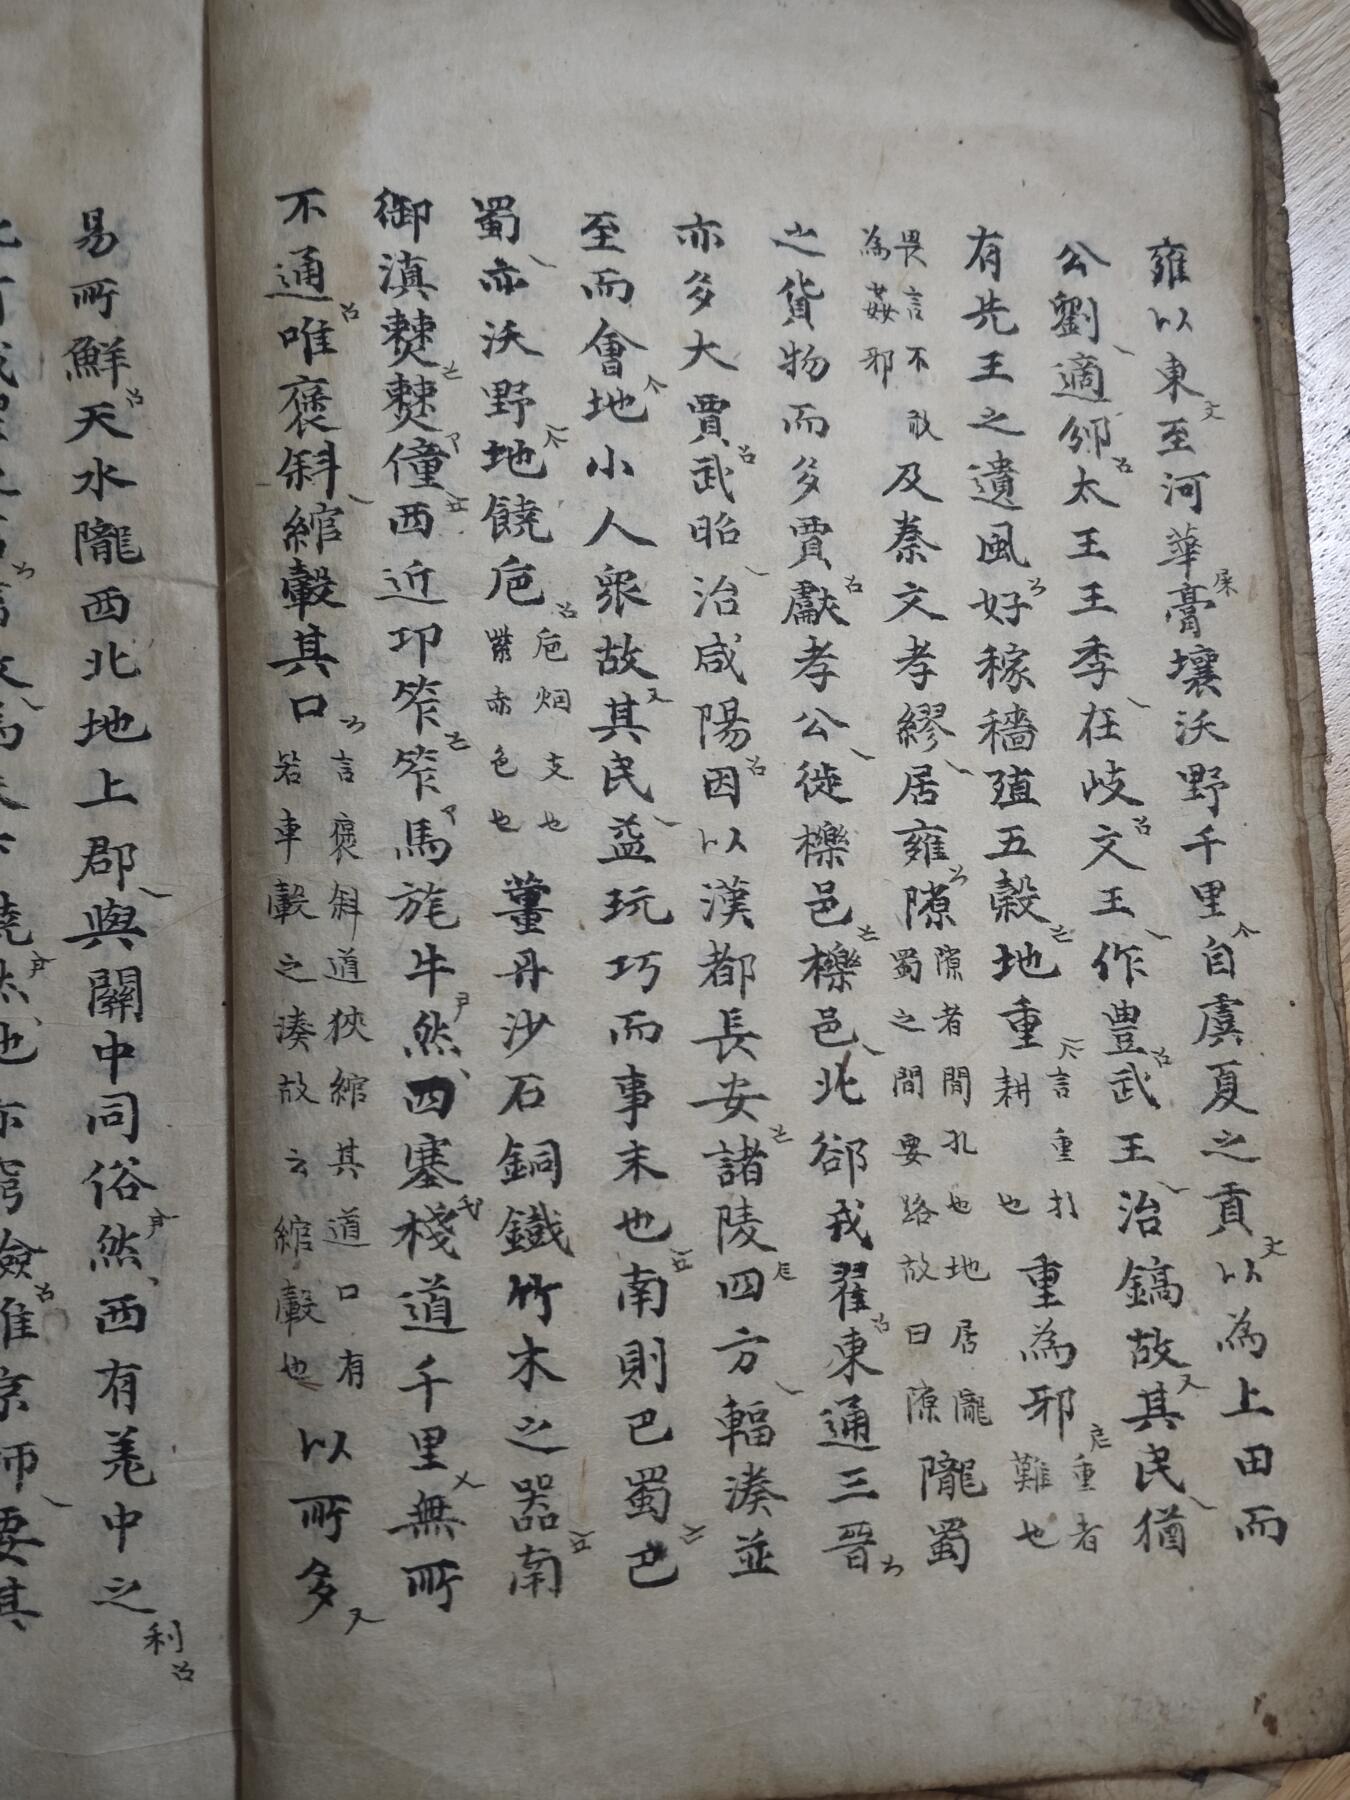 雍以東至河華膏壤沃野千里自虞夏之貢以為上田而
公劉適邠太王王季在岐文王作豊武王治鎬故其民猶
有先王之遺風好稼穡殖五穀地重言重扵耕也重為邪重者難也
畏言不敢為姦邪及秦文孝繆居雍隙隙者間孔也地居隴蜀之間要路故曰隙隴蜀
之貨物而多賈獻孝公徙櫟邑櫟邑北郤戎翟東通三晉
亦多大賈武昭治咸陽因以漢都長安諸陵四方輻湊並
至而會地小人眾故其民益玩巧而事末也南則巴蜀巴
蜀亦沃野地饒巵巵烟支也紫赤色也薑丹沙石銅鐵竹木之器南
御滇僰僰僮西近邛笮笮馬旄牛然四塞棧道千里無所
不通唯褒斜綰轂其口言褒斜道狹綰其道口有若車轂之湊故云綰轂也以所多
易所鮮天水隴西北地上郡與關中同俗然西有羗中之利